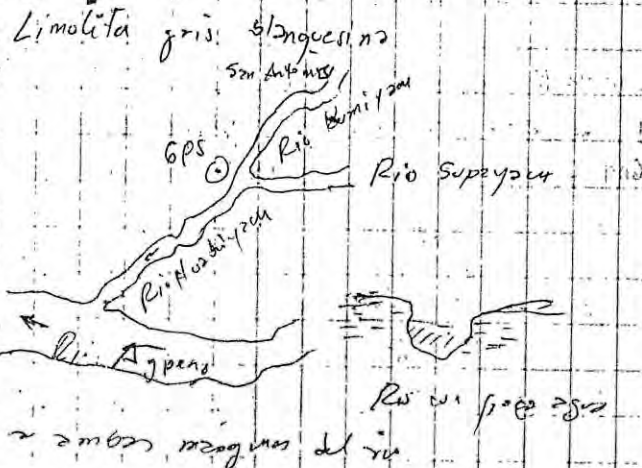 Limolita gris blanquesina
San Antonio
Rio Rumiyacu
GPS
Rio Supayacu
Rio Huatiyacu
Rio Agpena
Rio con poco agua
del rio